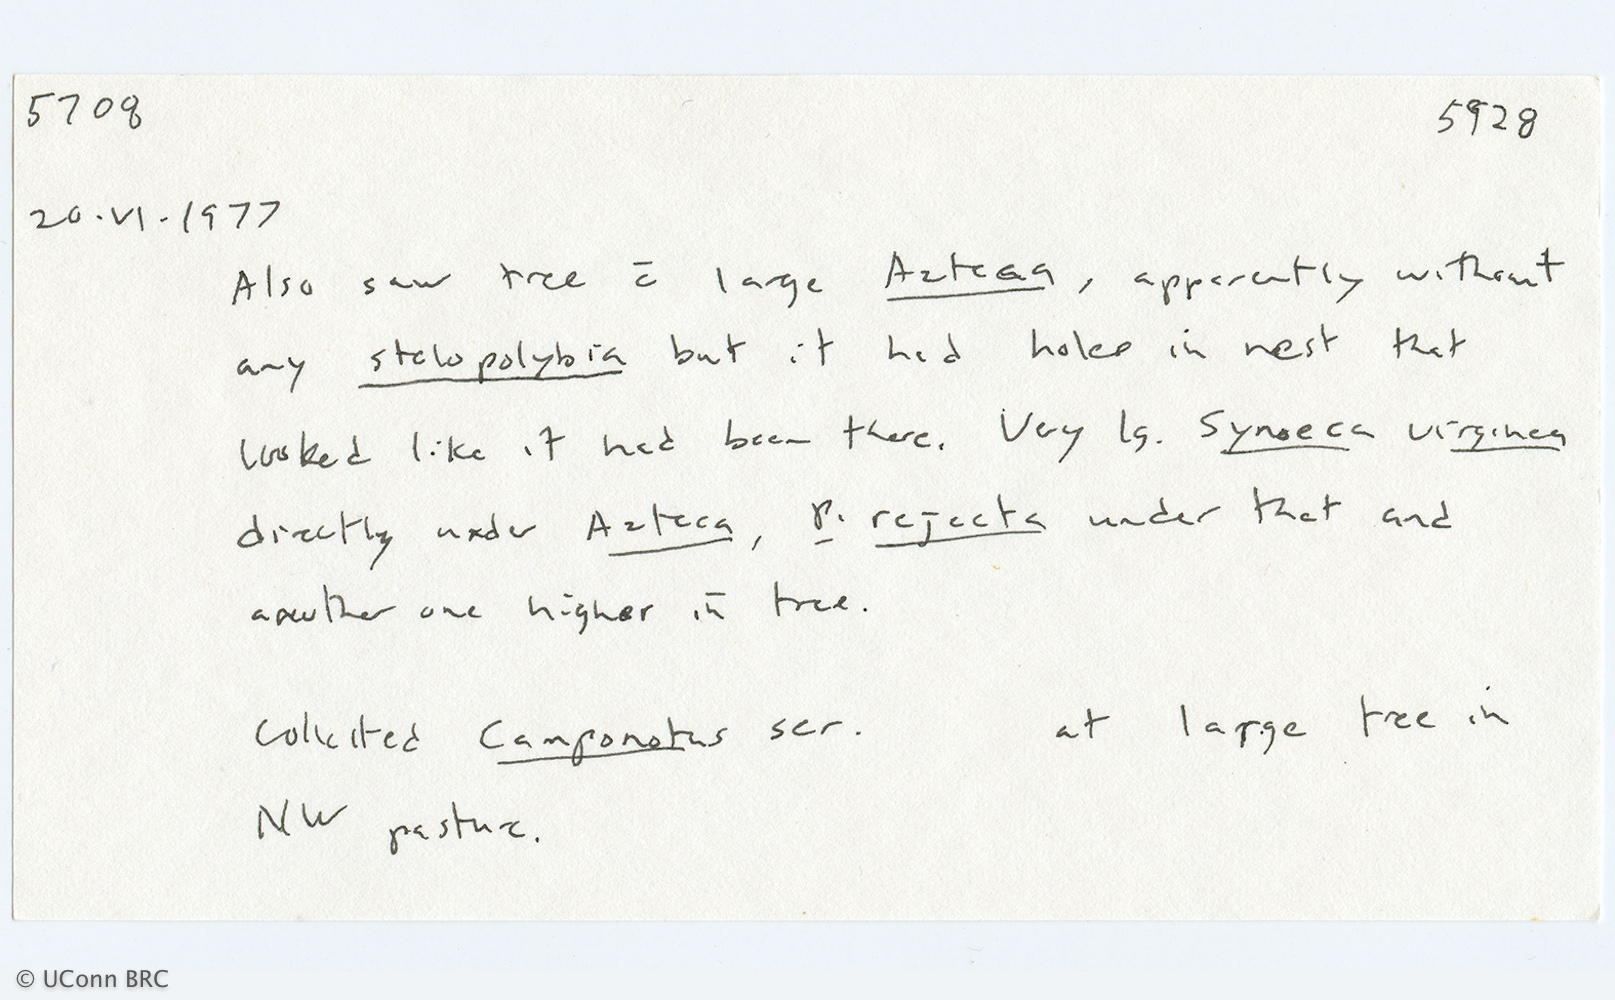 5708 5928
20.VI.1977
Also saw tree c̄ large Azteca, apparently without
any stelopolybia but it had holes in nest that
looked like it had been there. Very lg. Synoeca virginea
directly under Azteca, P. rejecta under that and
another one higher in tree.
Collected Camponotus ser. at large tree in
NW pasture.
© UConn BRC